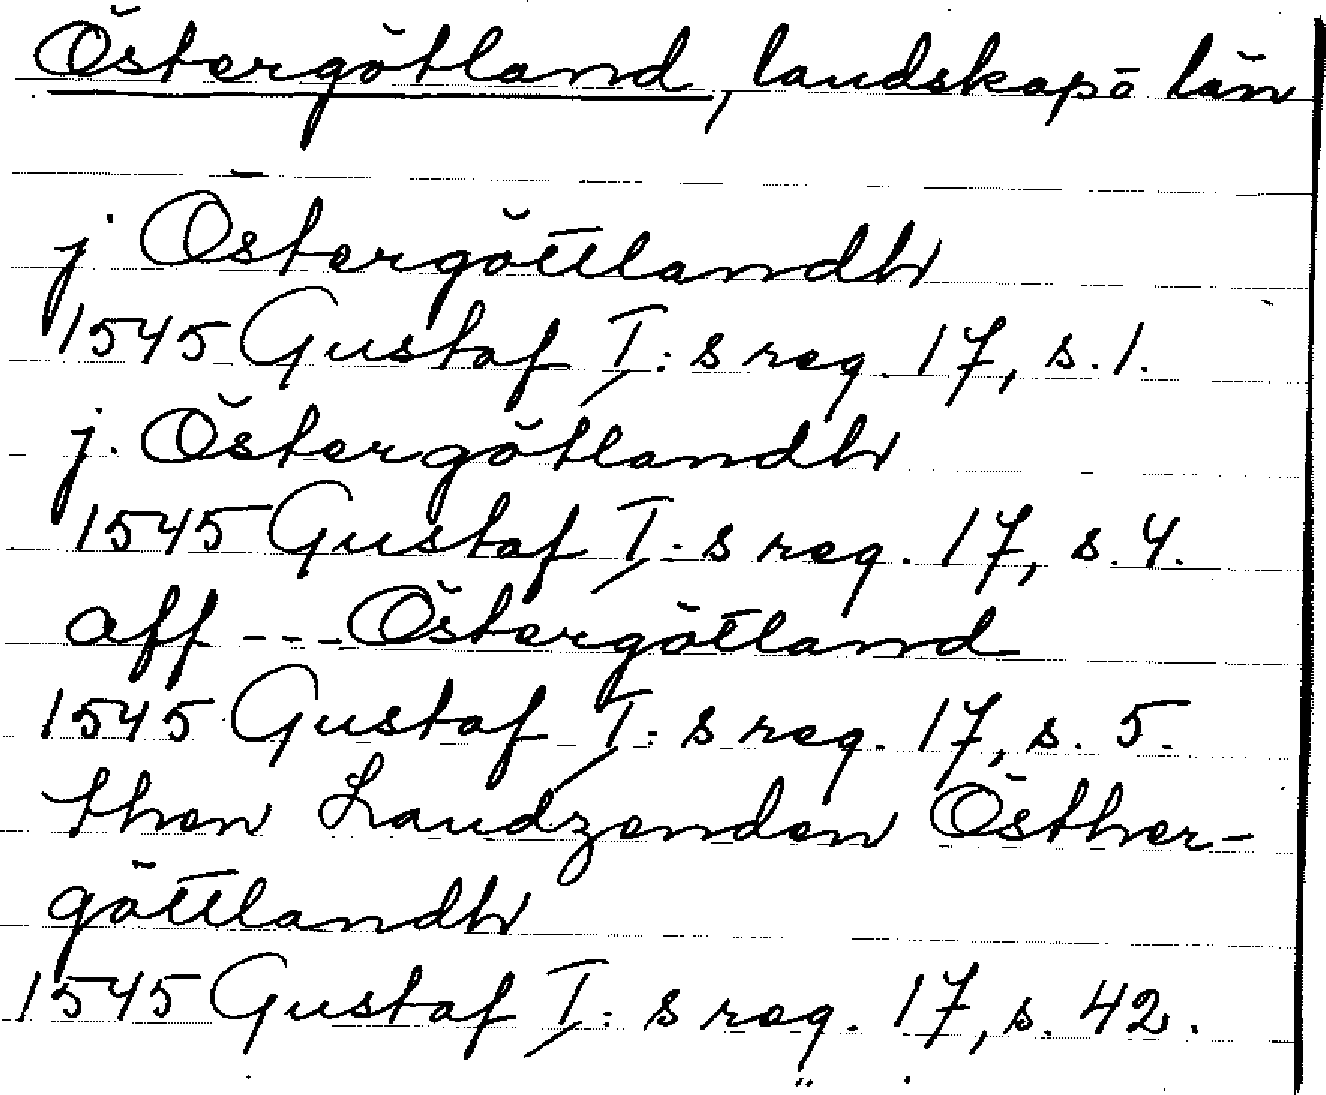 Östergötland, landskap o län
j Östergöttlandh
1545 Gustaf I:s reg. 17, s. 1.
j. Östergötlandh
1545 Gustaf I:s reg. 17, s. 4.
aff --- Östergötland
1545 Gustaf I:s reg. 17, s. 5.
then Landzenden Östher-
göttlandh
1545 Gustaf I:s reg. 17, s. 42.